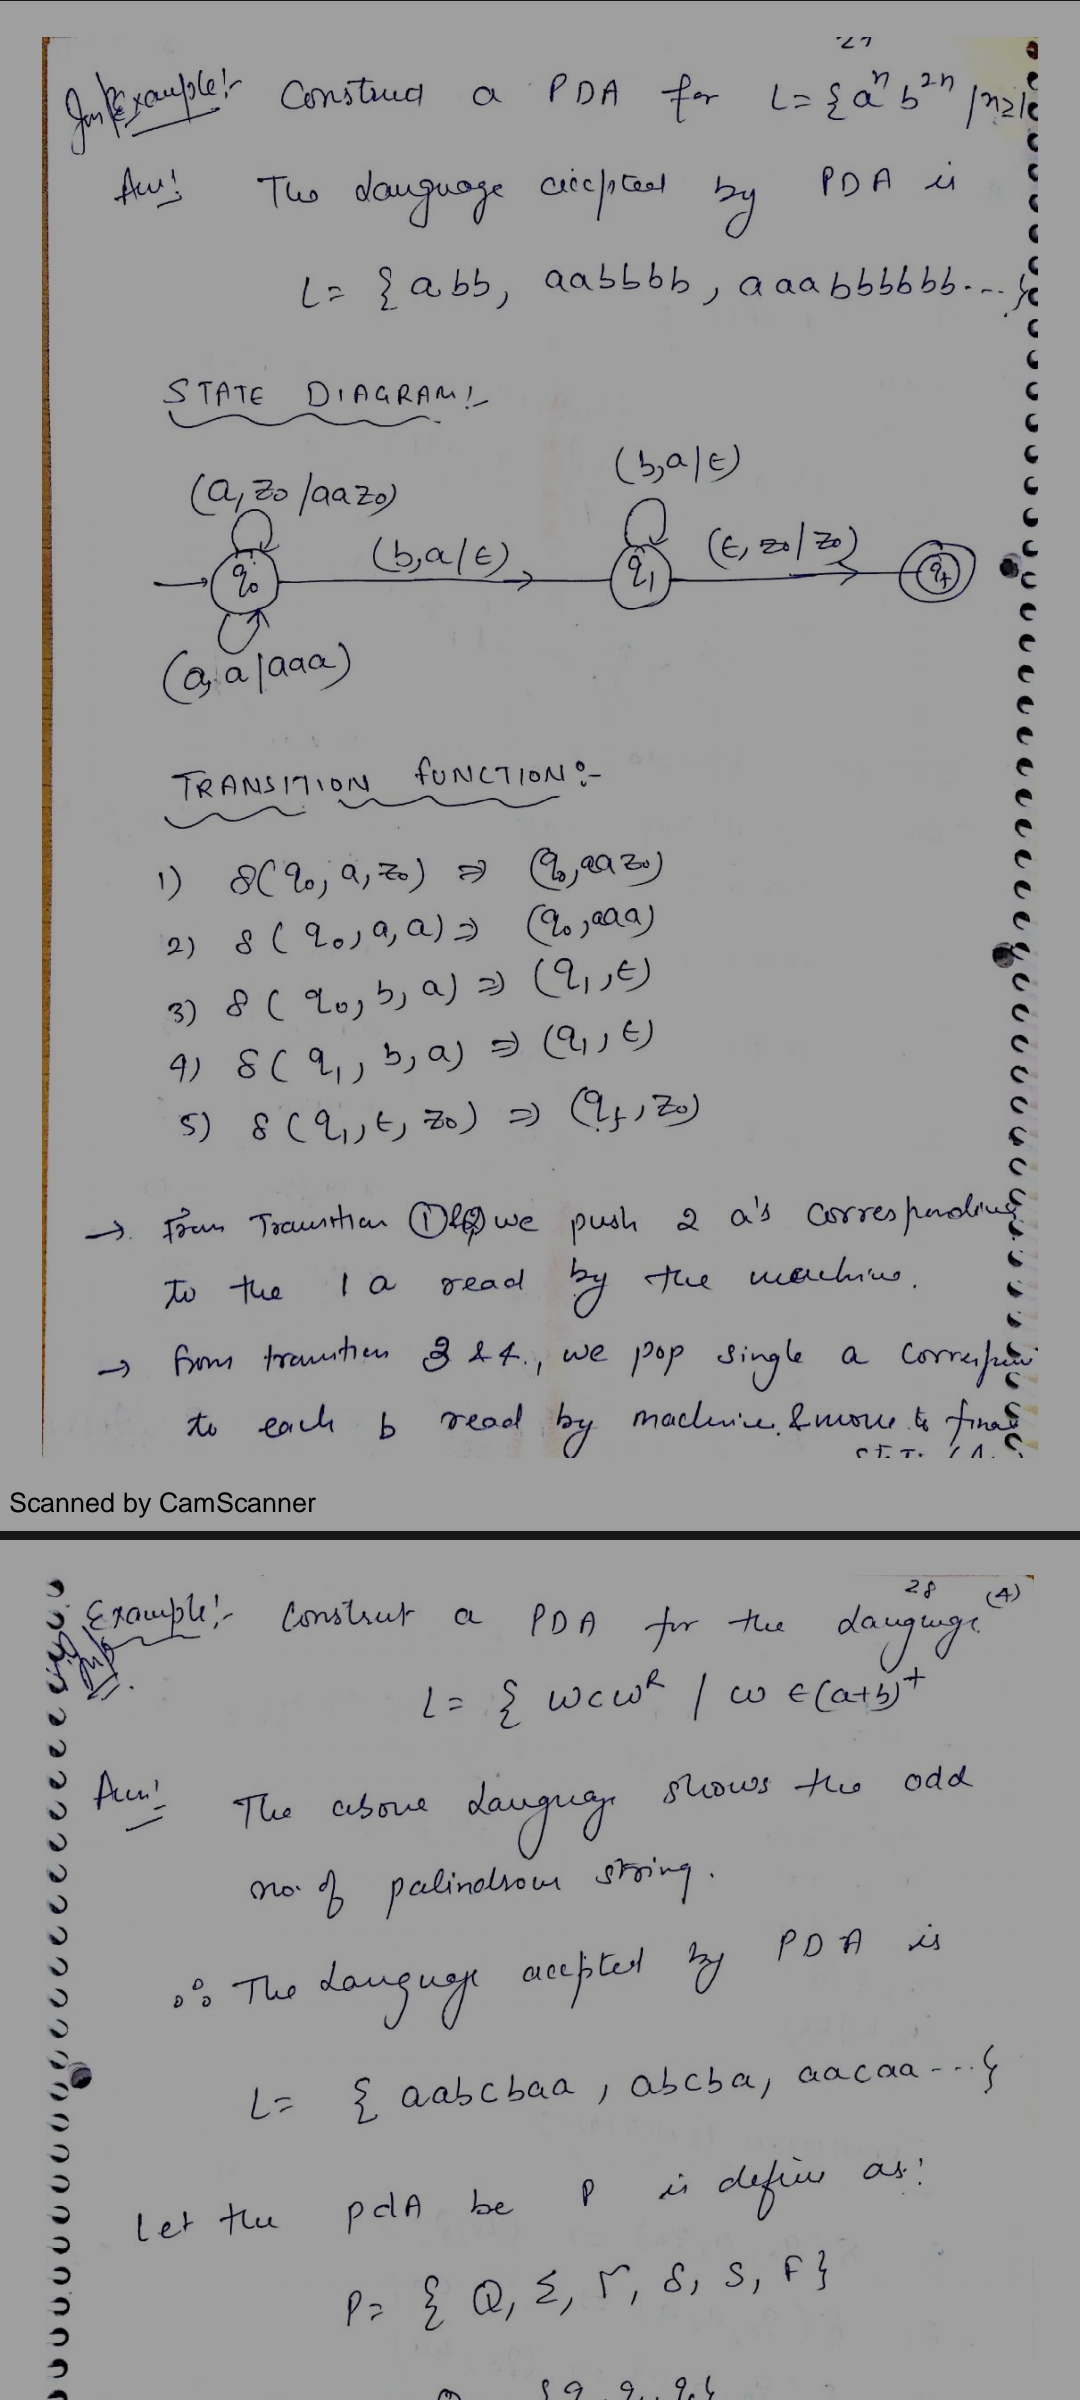 27
Imp Example:- Construct a PDA for L={a^n b^2n /n≥1
Ans: The Language accepted by PDA is
L= {abb, aabbbb, aaabbbbbb....}
STATE DIAGRAM:-
(b,a/ϵ)
(a,z0/aaz0)
(b,a/ϵ) (ϵ,z0/z0)
q0 q1 qf
(a,a/aaa)
TRANSITION FUNCTION:-
1) δ(q0, a, z0) ⇒ (q0,aaz0)
2) δ(q0, a, a) ⇒ (q0,aaa)
3) δ(q0, b, a) ⇒ (q1,ϵ)
4) δ(q1, b, a) ⇒ (q1,ϵ)
5) δ(q1, ϵ, z0) ⇒ (qf,z0)
→ From Transition ① & ② we push 2 a's corresponding
to the 1 a read by the machine.
→ from transition 3 & 4., we pop single a
to each b read by machine. & move to final
Scanned by CamScanner
28 (4)
Example:- Construct a PDA for the Language
Imp
L= { wcw^R / w ϵ(a+b)^+
Ans: The above Language shows the odd
no. of palindrom string.
∴ The Language accepted by PDA is
L= { aabcbaa, abcba, aacaa ---}
Let the pdA be P is define as:
P= { Q, Σ, Γ, δ, S, F}